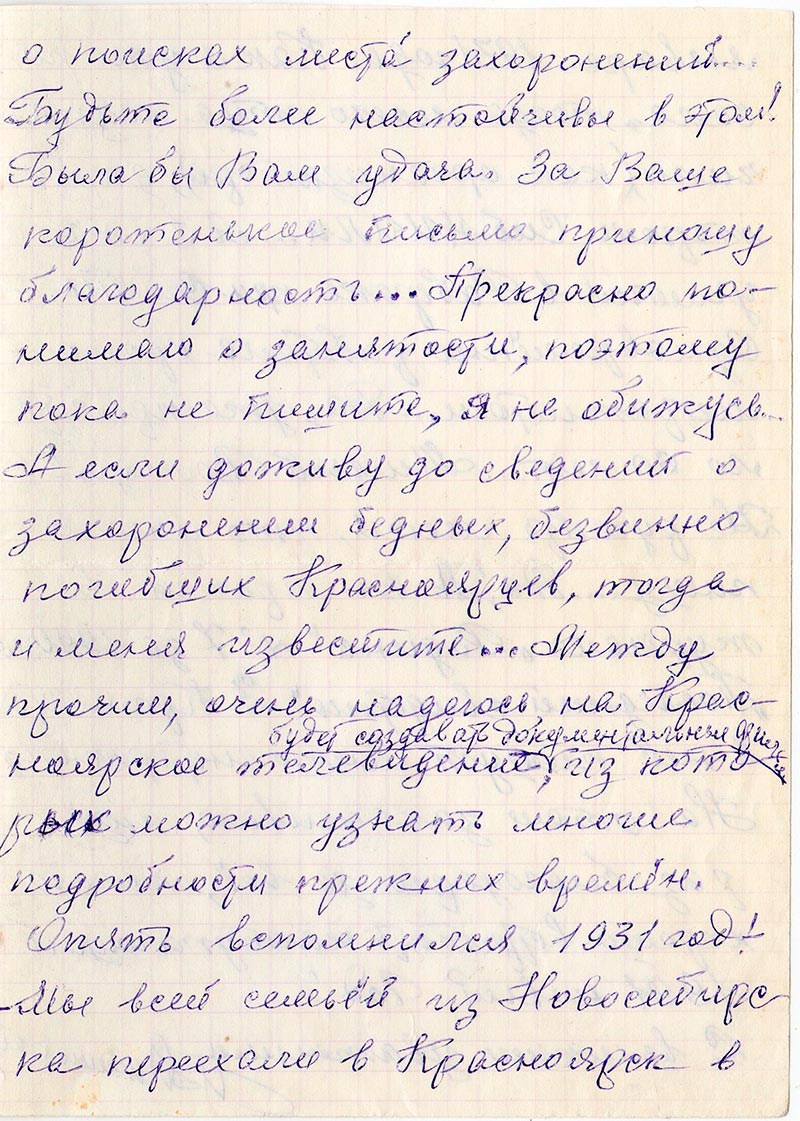 о поисках места захоронений....
Будьте более настойчивы в этом!
Была бы Вам удача. За Ваше
коротенькое письмо приношу
благодарность... Прекрасно по-
нимаю о занятости, поэтому
пока не пишите, я не обижусь...
А если доживу до сведений о
захоронении бедных, безвинно
погибших Красноярцев, тогда
и меня известите... Между
прочим, очень надеюсь на Крас-
будет создавать документальные фильмы
ноярское телевидение, из кото
рых можно узнать многие
подробности прежних времён.
Опять вспомнился 1931 год!
Мы всей семьёй из Новосибирс
ка переехали в Красноярск в